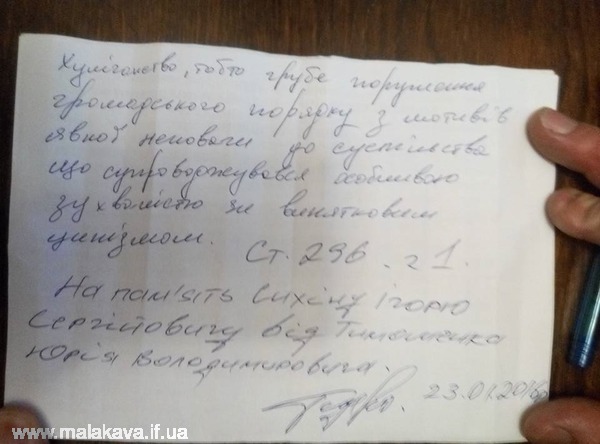 Хуліганство, тобто грубе порушення
громадського порядку з мотивів
явної неповаги до суспільства
що супроводжувався особливою
зухвалістю чи винятковим
цинізмом.
Ст. 296 ч 1.
На пам'ять Сихіну Ігорю
Сергійовичу від Тимошенка
Юрія Володимировича.
23.01.2016р
www.malakava.if.ua